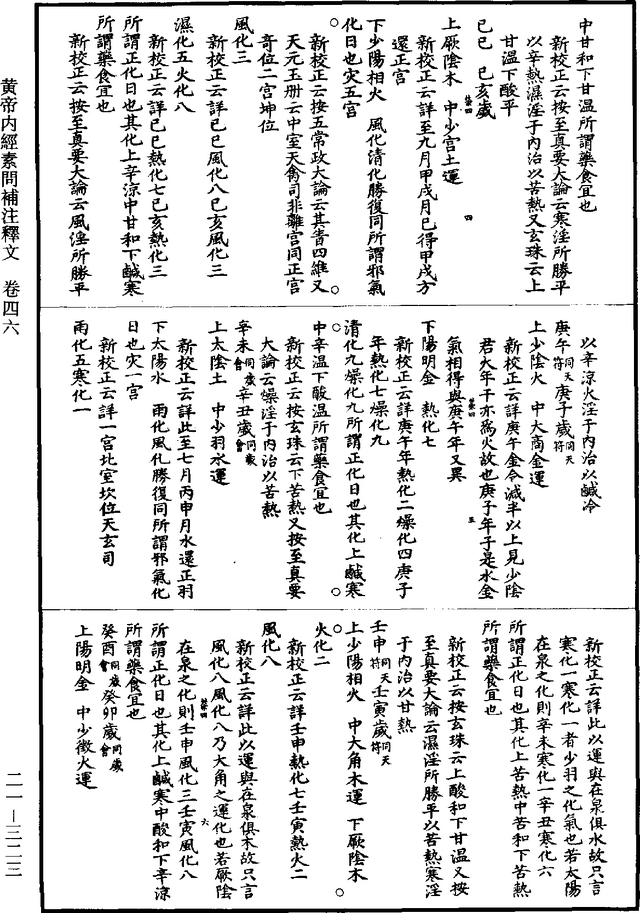 黄帝内經素問補注釋文　卷四六
二一—三二三
中甘和下甘温所謂藥食宜也
新校正云按至真要大論云寒淫所勝平
以辛熱濕淫于内治以苦熱又玄珠云上
甘温下酸平
己巳　己亥歲
上厥陰木　中少宫土運
新校正云詳至九月甲戌月已得甲戌方
還正宫
下少陽相火　風化清化勝復同所謂邪氣
化日也灾五宫
新校正云按五常政大論云其眚四維又
天元玉册云中室天禽司非離宫同正宫
寄位二宫坤位
風化三
新校正云詳己巳風化八己亥風化三
濕化五火化八
新校正云詳己巳熱化七己亥熱化三
所謂正化日也其化上辛涼中甘和下鹹寒
所謂藥食宜也
新校正云按至真要大論云風淫所勝平
以辛涼火淫于内治以鹹冷
庚午同天符庚子歲同天符
上少陰火　中太商金運
新校正云詳庚午金令減半以上見少陰
君火年午亦爲火故也庚子年子是水金
氣相得與庚午年又異
下陽明金　熱化七
新校正云詳庚午年熱化二燥化四庚子
年熱化七燥化九
清化九燥化九所謂正化日也其化上鹹寒
中辛温下酸温所謂藥食宜也
新校正云按玄珠云下苦熱又按至真要
大論云燥淫于内治以苦熱
辛未同歲會辛丑歲同歲會
上太陰土　中少羽水運
新校正云詳此至七月丙申月水還正羽
下太陽水　雨化風化勝復同所謂邪氣化
日也灾一宫
新校正云詳一宫北室坎位天玄司
雨化五寒化一
新校正云詳此以運與在泉俱水故只言
寒化一寒化一者少羽之化氣也若太陽
在泉之化則辛未寒化一辛丑寒化六
所謂正化日也其化上苦熱中苦和下苦熱
所謂藥食宜也
新校正云按玄珠云上酸和下甘温又按
至真要大論云濕淫所勝平以苦熱寒淫
于内治以甘熱
壬申同天符壬寅歲同天符
上少陽相火　中大角木運　下厥陰木
火化二
新校正云詳壬申熱化七壬寅熱火二
風化八
新校正云詳此以運與在泉俱木故只言
風化八風化八乃大角之運化也若厥陰
在泉之化則壬申風化三壬寅風化八
所謂正化日也其化上鹹寒中酸和下辛涼
所謂藥食宜也
癸酉同歲會癸卯歲同歲會
上陽明金　中少徵火運